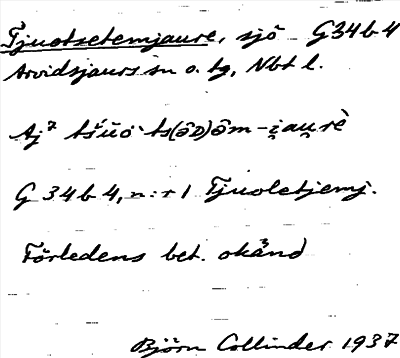 Tjuotsetemjaure, sjö G34b4
Arvidsjaurs sn o. tg, Nbt l.
Aj⁷ tš́ŭo͑ ts(əᴅ)əm-i̯au̯rè
G 34 b 4, n:r 1 Tjuoletjemj.
Förledens bet. okänd
Björn Collinder 1937